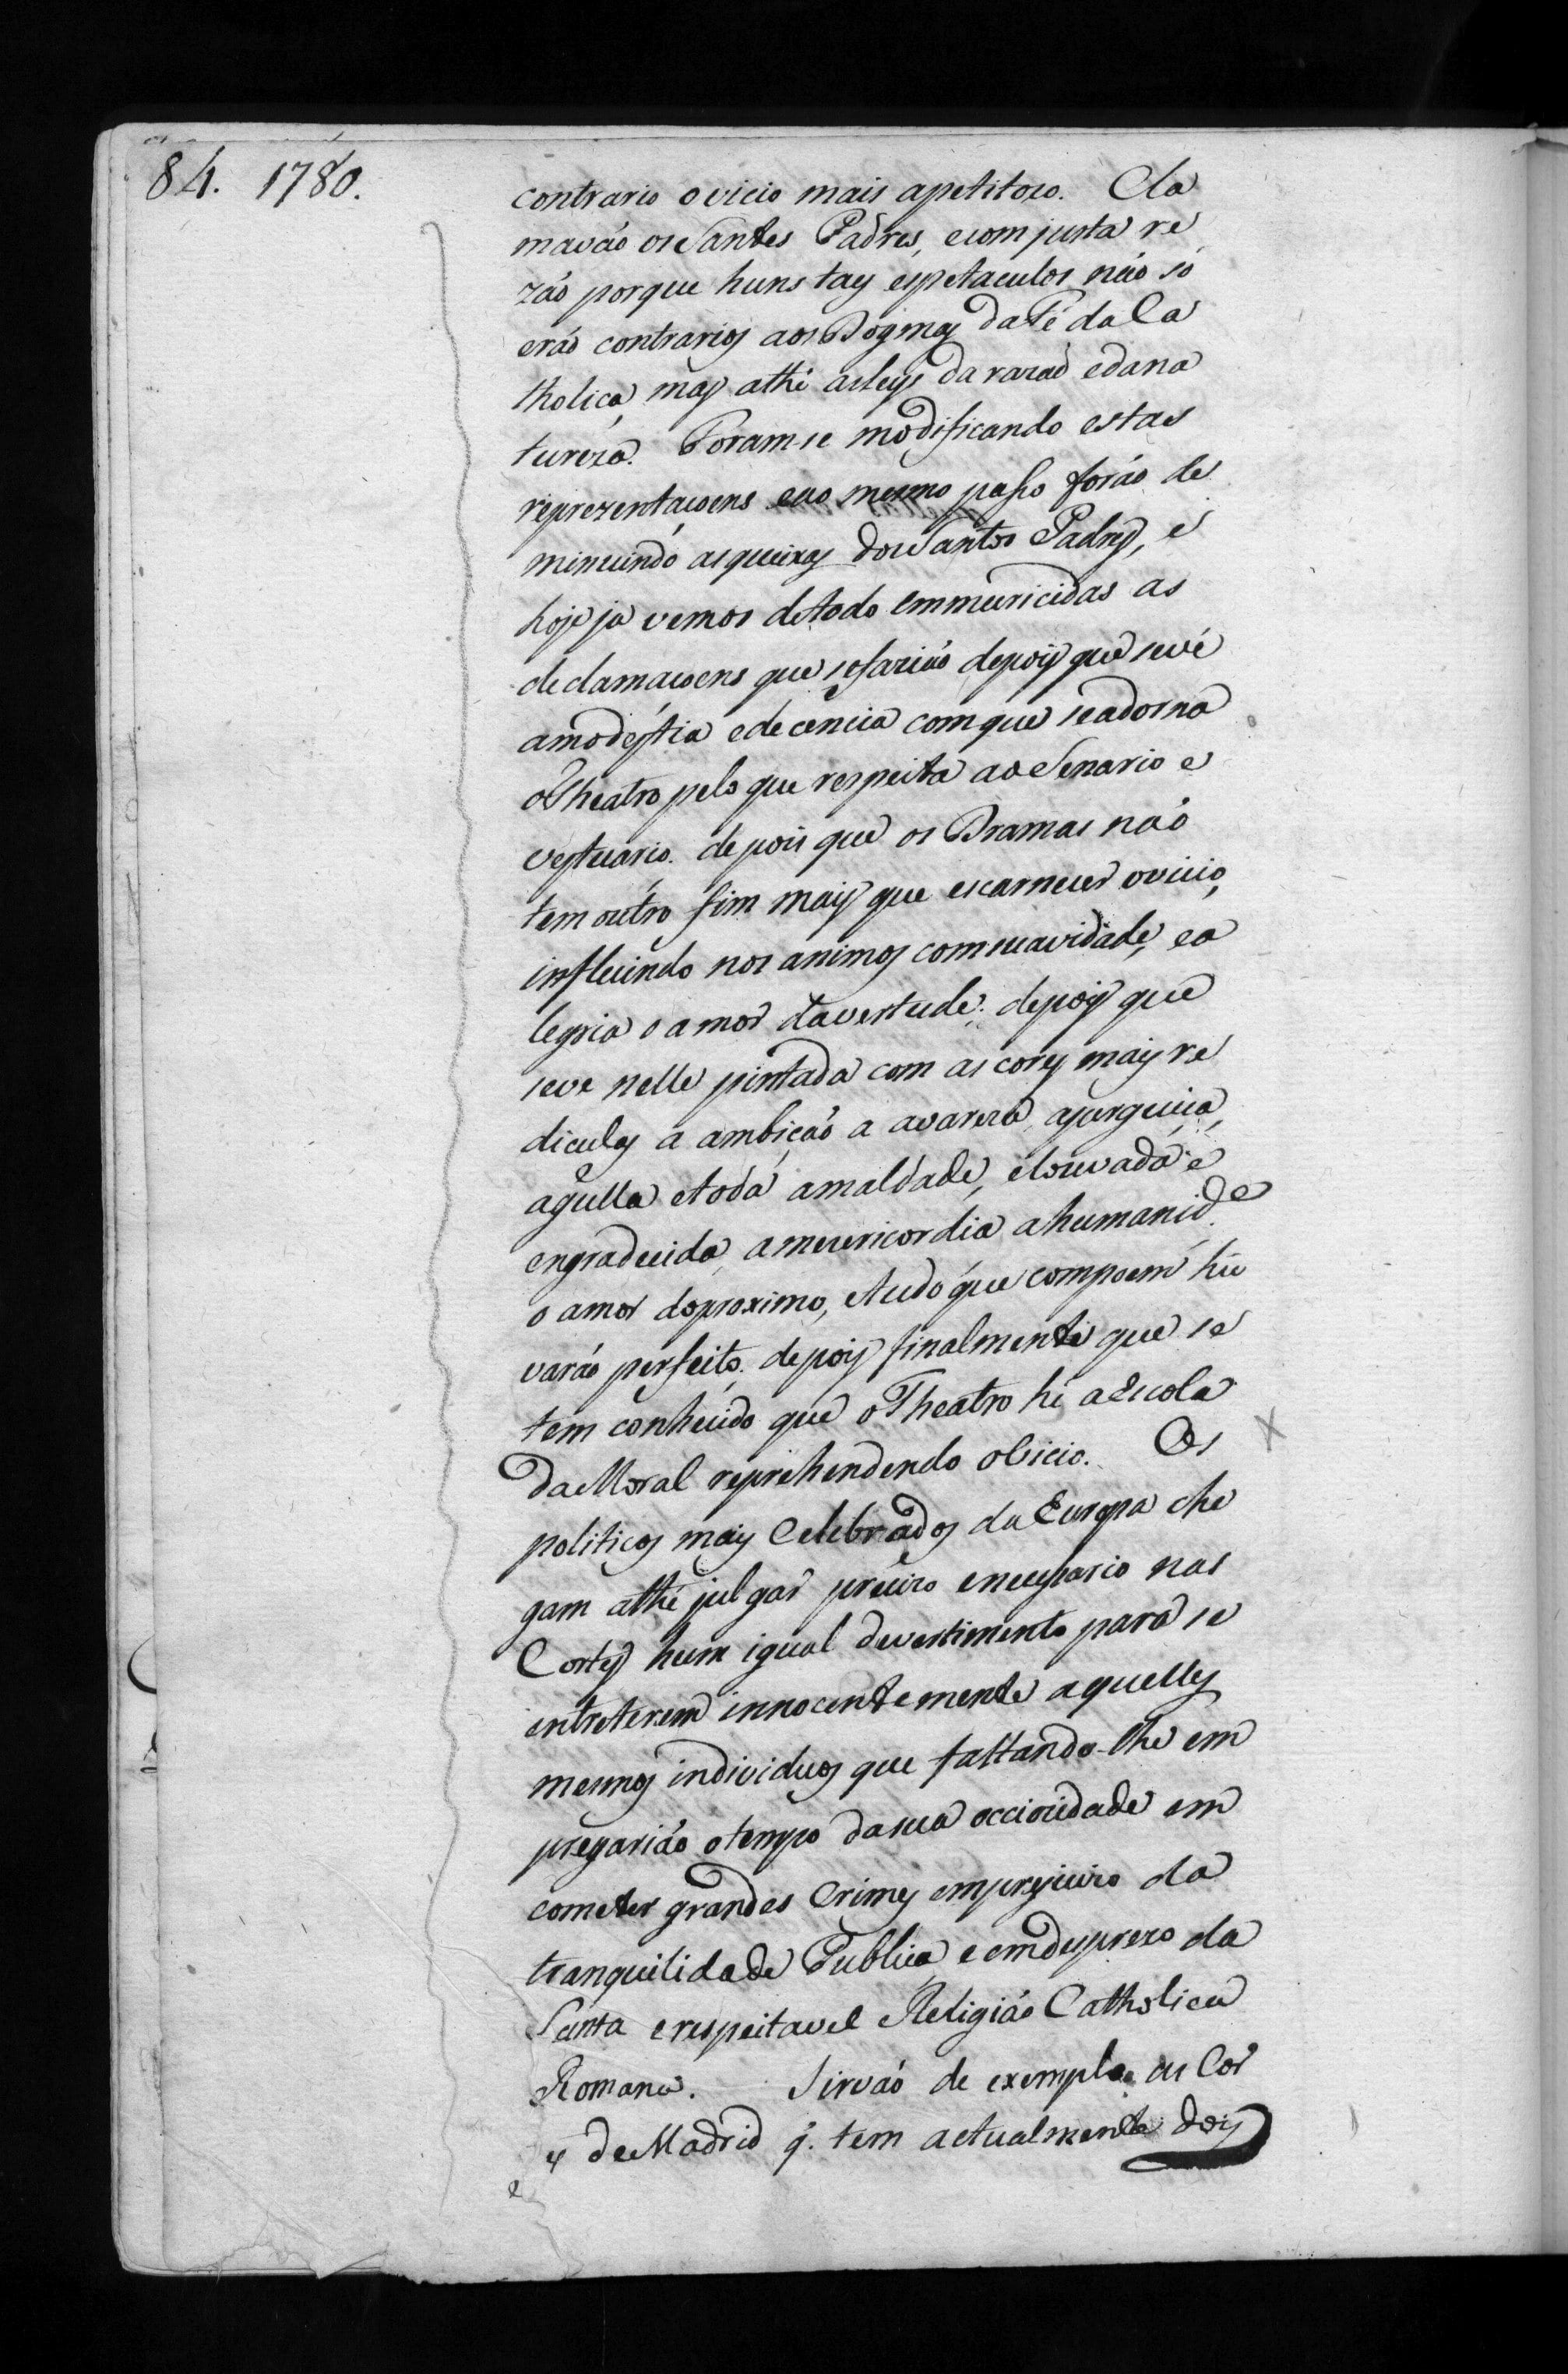 84. 1780.
contrario o vicio mais apetitozo. Cla
mavão os Santos Padres, e com justa re
zão porque huns tays espetaculos não só
erão contrarios aos Dogmas da Fé da Ca
tholica, mas athé as Leys da razaõ e da na
tureza. Foram-se modificando estas
reprezentaçoens e ao mesmo passo forão de
minuindo as queixas dos Santos Padres, e
hoje ja vemos de todo emmuricidas as
declamaçoens que se fazião depoys que se vé
a modéstia e decencia com que se adorna
o Theatro pelo que respeita ao Senario e
vestuario. depois que os Dramas naõ
tem outro fim mays que escarnecer o vicio,
influindo nos animos com suavidade, e a
legria o amor da vertude: depoys que
se ve nelle pintada com as cores mays re
diculas a ambição a avareza, a purguiça,
a gulla e toda a maldade, e louvada e
engradecida, a mesericordia a humanid.e
o amor do proximo, e tudo que compoem hũ
varão perfeito. depoys finalmente que se
tem conhecido que o Theatro hé a Escola
da Moral reprehendendo o Vicio. Os
politicos mays Celebrados da Europa che
gam athé julgar precizo e necessario nas
Cortes hum igual devertimento para se
entreterem innocentemente aquelles
mesmos individuos que faltando-lhe em
pregarião o tempo da sua occiozidade em
cometer grandes Crimes em prejuizo da
tranquilidade Publica, e em desprezo da
Santa e respeitavel Religião Catholica
Romana. Sirvão de exemplo as Cor
es de Madrid q. tem actualmente doys